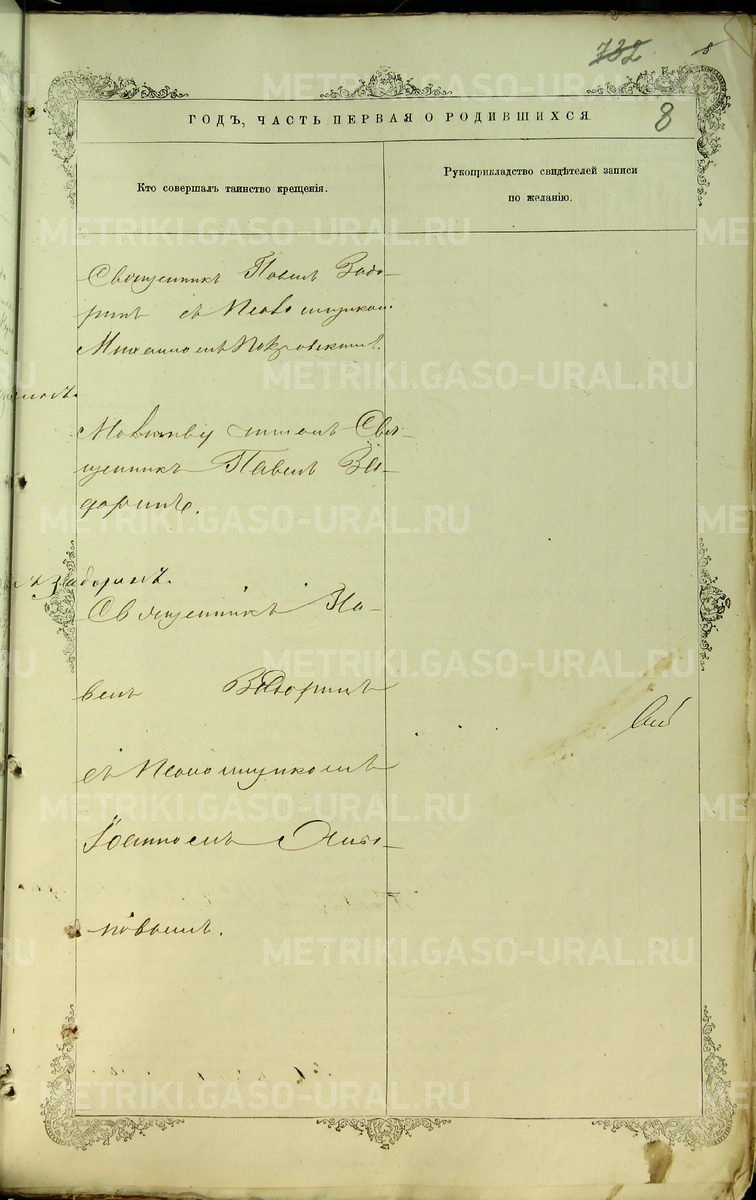 732
8
8
ГОДЪ, ЧАСТЬ ПЕРВАЯ О РОДИВШИХСЯ.
Кто совершалъ таинство крещенія.
Рукоприкладство свидѣтелей записи
по желанію.
Священникъ Павелъ Задо-
ринъ съ Псаломщикомъ
Михаиломъ Покровскимъ.
Молитву
Свя-
щенникъ Павелъ За-
доринъ.
Задоринъ.
Священникъ Па-
велъ Задоринъ
съ Псаломщикомъ
Іоанномъ
новымъ.
METRIKI.GASO-URAL.RU